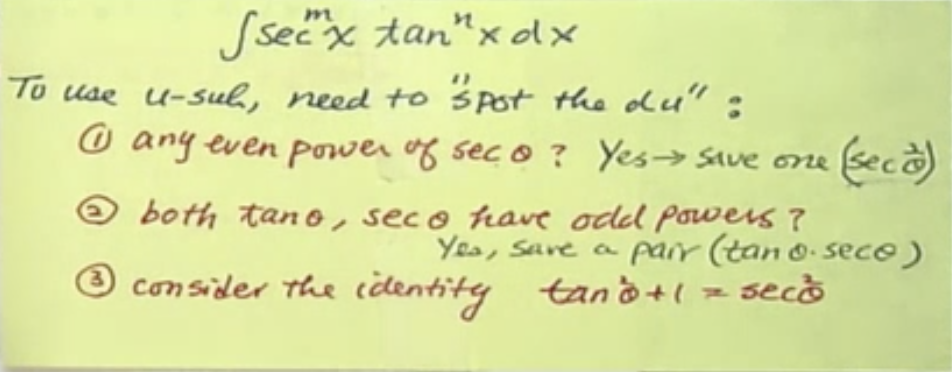 ∫ sec^m x tan^n x dx
To use u-sub, need to "spot the du" :
① any even power of sec θ ? Yes → save one (sec²θ)
② both tan θ, sec θ have odd powers ?
Yes, save a pair (tan θ · sec θ)
③ consider the identity tan²θ + 1 = sec²θ